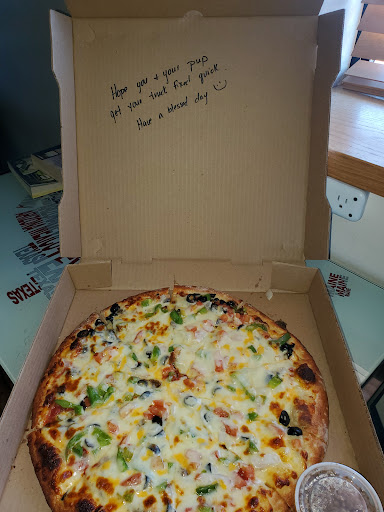 Hope you & your pup
get your truck fixed quick.
Have a blessed day
TEXAS